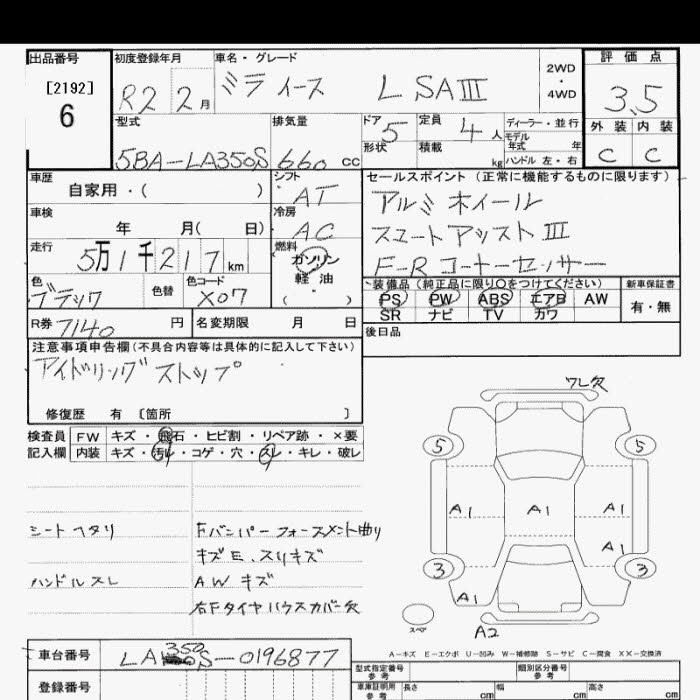 出品番号
[2192]
6
初度登録年月
R2 2月
車名・グレード
ミライース L SAⅢ
2WD
・
4WD
評価点
3.5
外装 内装
C C
型式
5BA-LA350S
排気量
660 cc
ドア
5
形状
定員
4人
積載
kg
ディーラー・並行
モデル
年式 年
ハンドル 左・右
車歴
自家用・( )
シフト
AT
車検
年 月( 日)
冷房
AC
走行
5万1千217km
燃料
ガソリン
軽油
( )
色
ブラック
色替
色コード
X07
セールスポイント (正常に機能するものに限ります)
アルミホイール
スマートアシストⅢ
F-Rコーナーセンサー
装備品(純正品に限り○をつけてください)
PS PW ABS エアB AW
SR ナビ TV カワ
新車保証書
有・無
R券 7140 円
名変期限 月 日
後日品
注意事項申告欄(不具合内容等は具体的に記入して下さい)
アイドリングストップ
修復歴 有 〔箇所 〕
検査員
記入欄
FW キズ・飛石・ヒビ割・リペア跡・×要
内装 キズ・汚レ・コゲ・穴・スレ・キレ・破レ
シートヘタリ
ハンドルスレ
Fバンパーフォースメント曲り
キズE、スリキズ
AW キズ
右Fタイヤハウスカバー欠
フレ欠
5 5
A1 A1 A1
A1
3 3
A1
スペア
A2
A-キズ E-エクボ U-凹み W-補修跡 S-サビ C-腐食 XX-交換済
車台番号
LA350S-0196877
登録番号
型式指定番号
参考
類別区分番号
参考
車庫証明用
参考
長さ cm 幅 cm 高さ cm